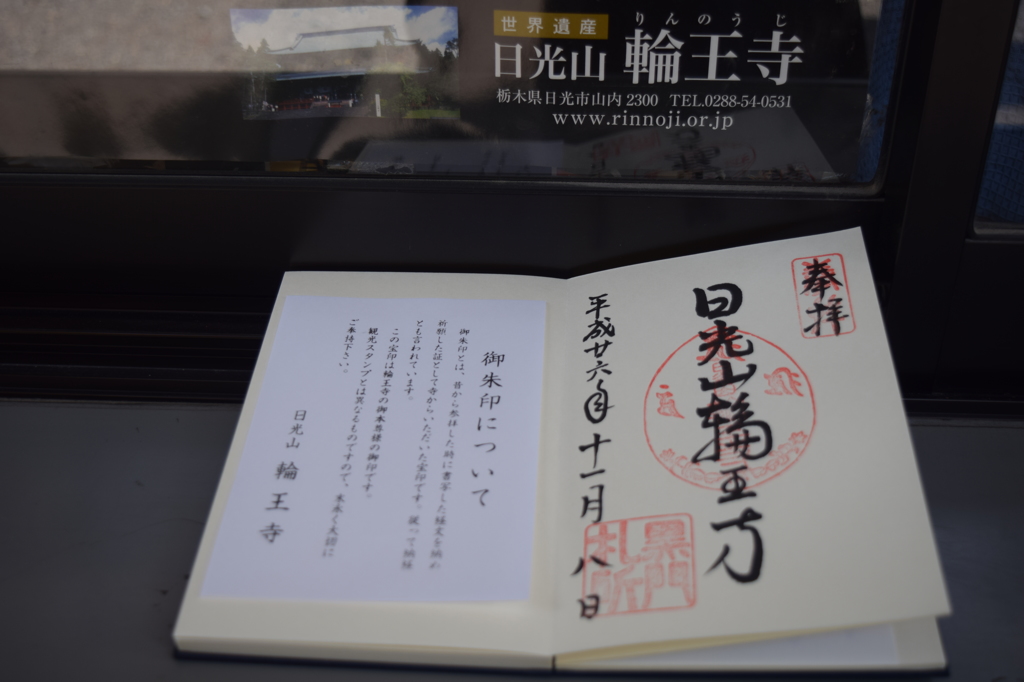 世界遺産
りんのうじ
日光山 輪王寺
栃木県日光市山内 2300 TEL.0288-54-0531
www.rinnoji.or.jp
奉拝
日光山輪王寺
平成廿六年十一月八日
黒門
札所
御朱印について
御朱印とは、昔から参拝した時に書写した経文を納め
祈願した証として寺からいただいた宝印です。従って納経
とも言われています。
この宝印は輪王寺の御本尊様の御印です。
観光スタンプとは異なるものですので、末永く大切に
ご奉持下さい。
日光山 輪王寺